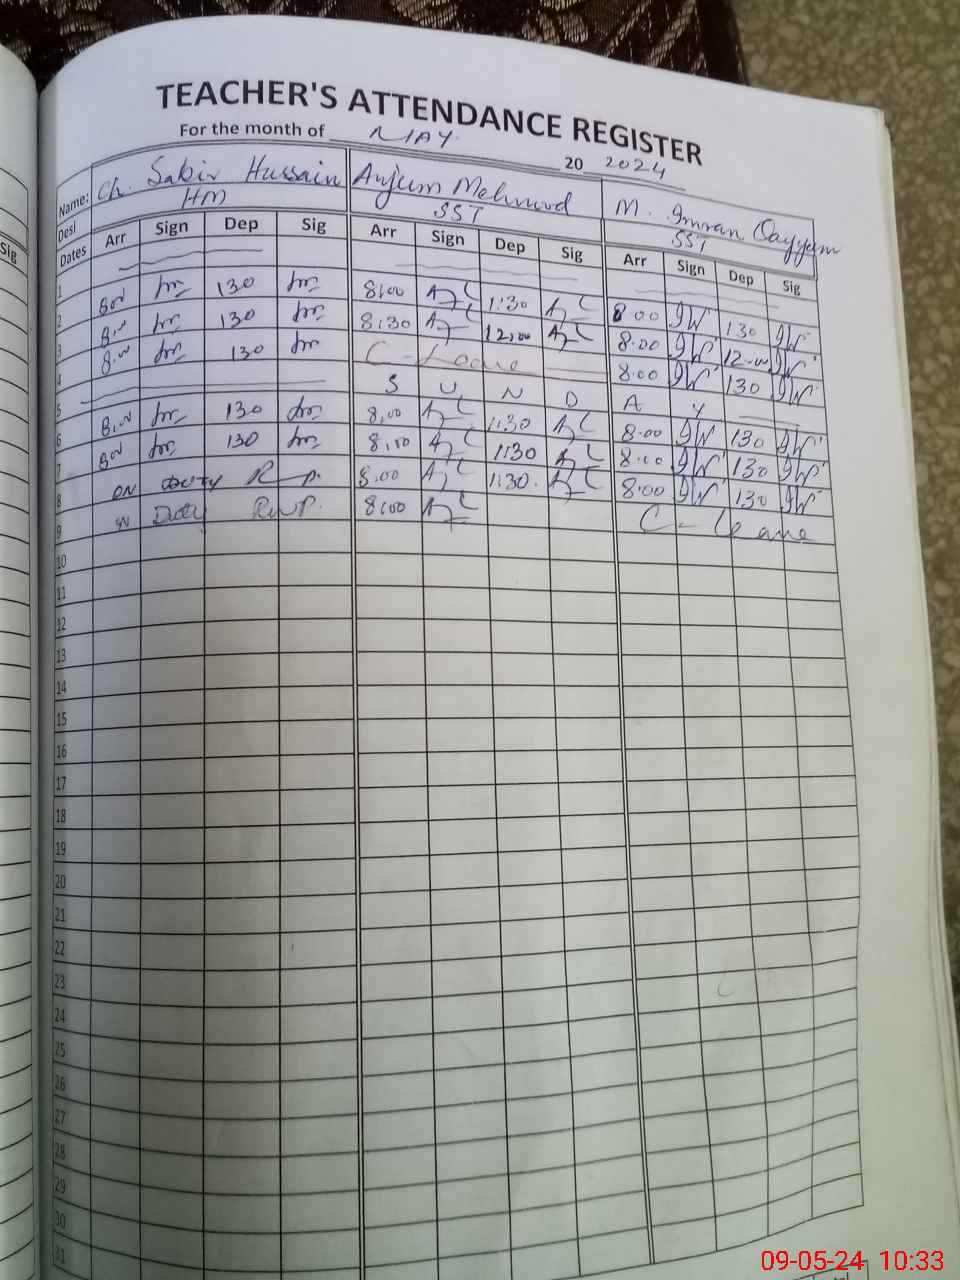 TEACHER'S ATTENDANCE REGISTER
For the month of MAY 20 2024
Name: Ch. Sabir Hussain Anjum Mehmood M. Imran Qayyum
Desi HM SST SST
Dates Arr Sign Dep Sig Arr Sign Dep Sig Arr Sign Dep Sig
Sig
1
2 800 130 8:00 1:30 8 00 130
3 8.00 130 8:30 12:00 8.00 12-00
4 8.00 130 C-Leave 8.00 130
5 S U N D A Y
6 8.00 130 8.00 1:30 8.00 130
7 800 130 8.00 1:30 8.00 130
8 ON DUTY 8.00 1:30. 8.00 130
9 Duty RWP. 8:00 C-Leave
10
11
12
13
14
15
16
17
18
19
20
21
22
23
24
25
26
27
28
29
30
31
09-05-24 10:33